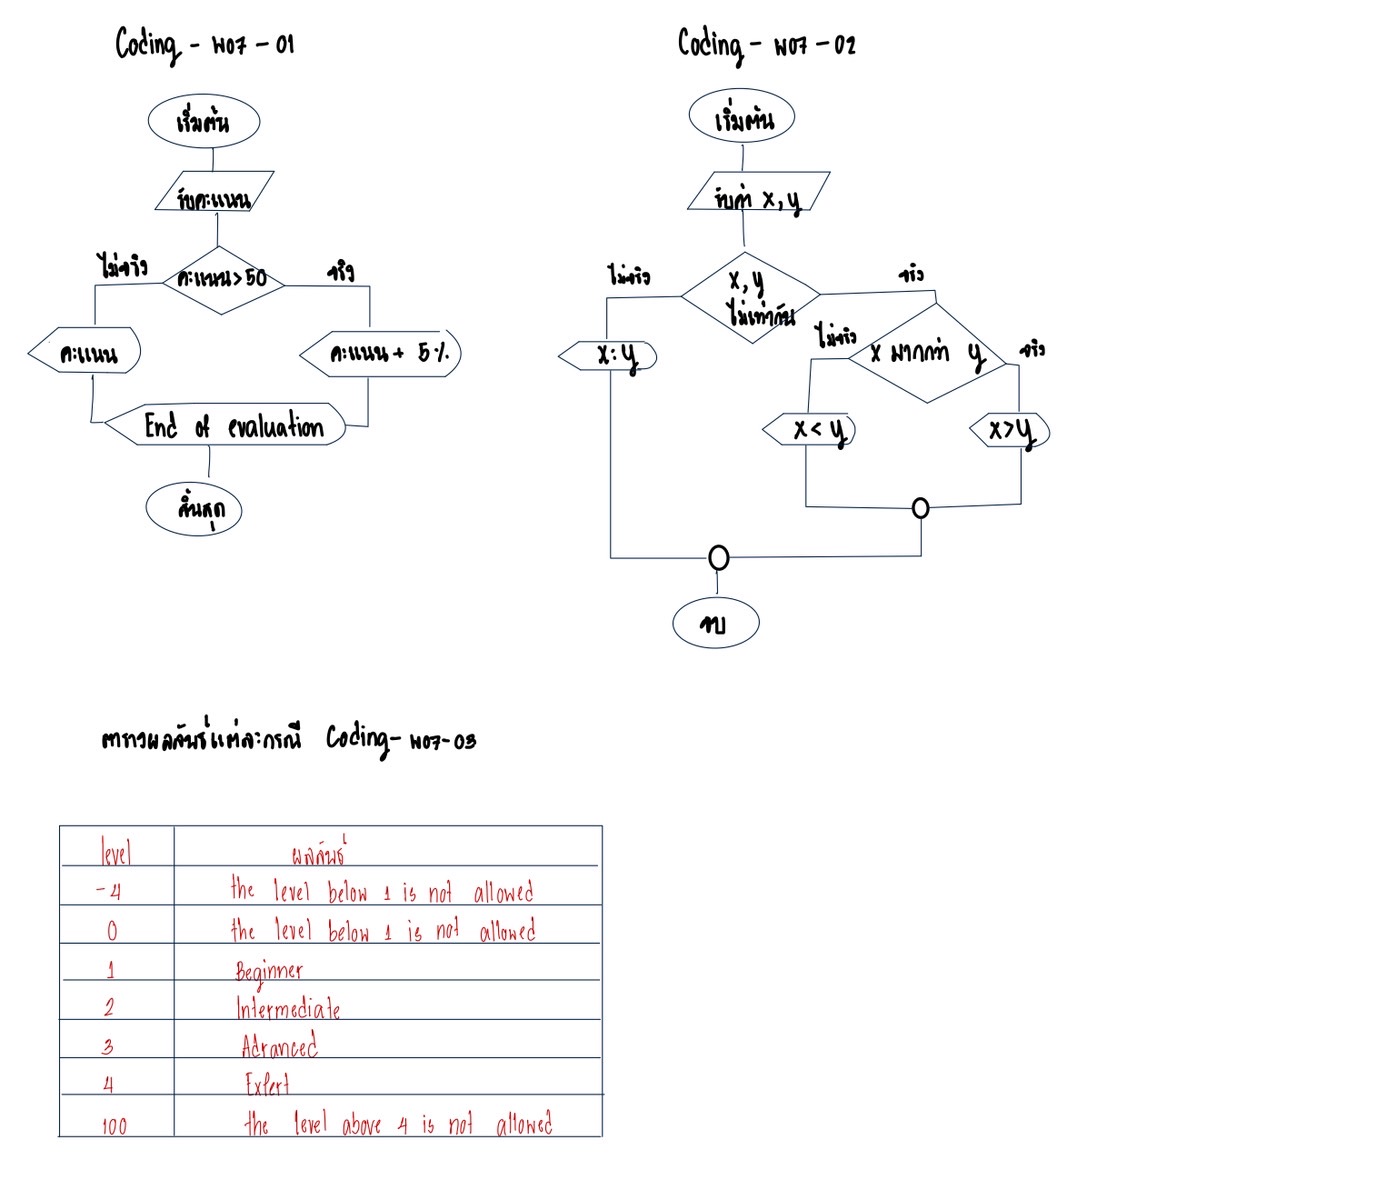 Coding - W07 - 01
เริ่มต้น
รับคะแนน
คะแนน > 50
ไม่จริง
จริง
คะแนน
คะแนน + 5%
End of evaluation
สิ้นสุด
Coding - W07 - 02
เริ่มต้น
รับค่า x, y
x, y
ไม่เท่ากัน
ไม่จริง
จริง
x : y
x มากกว่า y
ไม่จริง
จริง
x < y
x > y
จบ
ตารางผลลัพธ์แต่ละกรณี Coding - W07-03
level ผลลัพธ์
-4 the level below 1 is not allowed
0 the level below 1 is not allowed
1 Beginner
2 Intermediate
3 Advanced
4 Expert
100 the level above 4 is not allowed